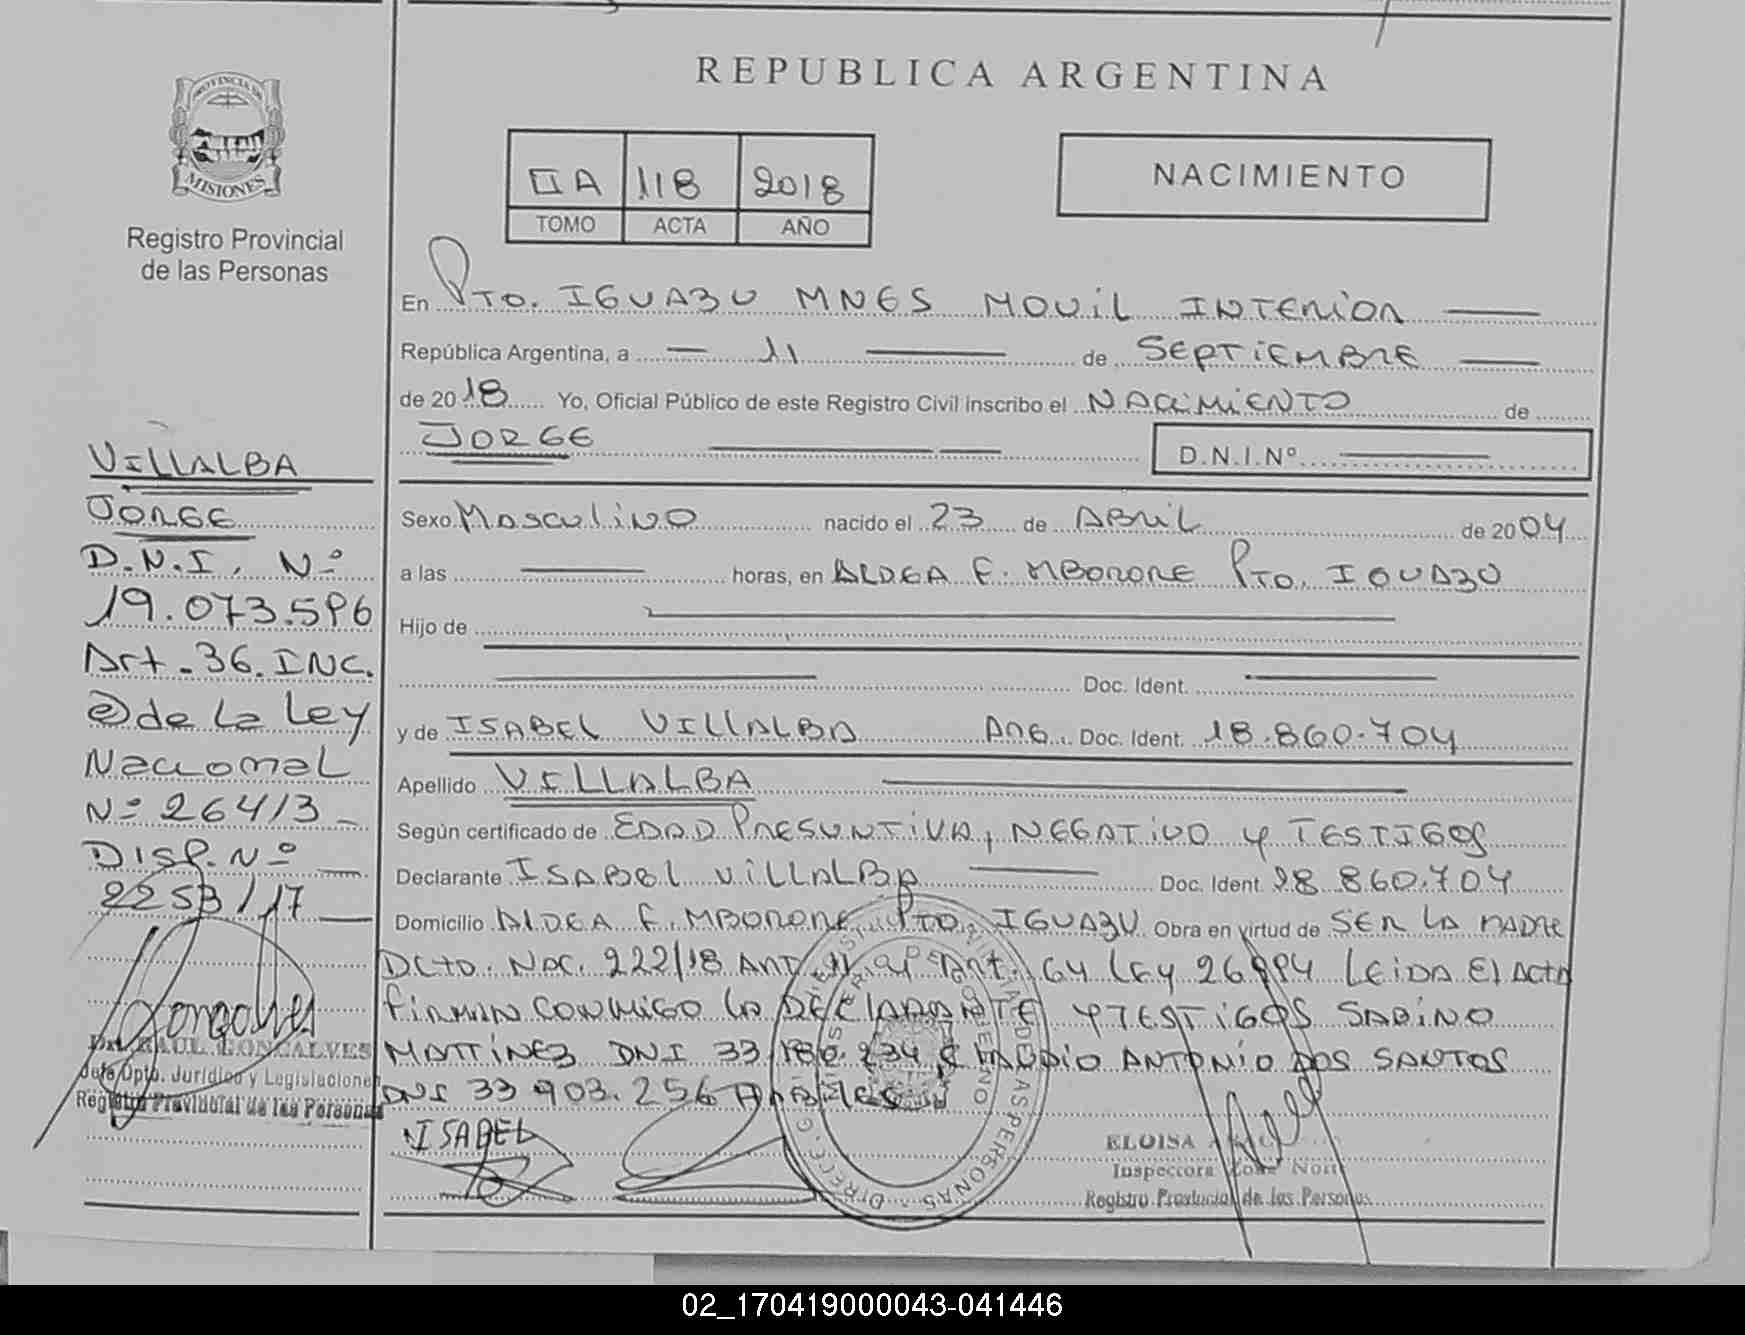 REPUBLICA ARGENTINA
PROVINCIA DE
MISIONES
Registro Provincial
de las Personas
II A 118 2018
TOMO ACTA AÑO
NACIMIENTO
En Pto. IGUAZU MNES MOVIL INTERIOR
República Argentina, a 11 de SEPTIEMBRE
de 2018 Yo, Oficial Público de este Registro Civil inscribo el NACIMIENTO de
JORGE D.N.I.Nº
Sexo Masculino nacido el 23 de ABRIL de 2004
a las horas, en ALDEA F. MBORORE Pto. IGUAZU
Hijo de
Doc. Ident.
y de ISABEL VILLALBA ARG. Doc. Ident. 18.860.704
Apellido VILLALBA
Según certificado de EDAD PRESUNTIVA, NEGATIVO y TESTIGOS
Declarante ISABEL VILLALBA Doc. Ident. 18 860.704
Domicilio ALDEA F. MBORORE Pto. IGUAZU Obra en virtud de SER LA MADRE
DCTO. NAC. 222/18 Art. 64 LEY 26994 LEIDA El Acta
FIRMAN CONMIGO LA DECLARANTE Y TESTIGOS SABINO
MARTINEZ DNI 33 180.234 CLAUDIO ANTONIO DOS SANTOS
DNI 33 903.256
ISABEL
ELOISA
Inspectora Zona Norte
Registro Provincial de las Personas
VILLALBA
JORGE
D.N.I. Nº
19.073.596
Art. 36. INC.
@ de La Ley
Nacional
Nº 26413
DISP. Nº
2253/17
Dr. RAUL GONCALVES
Jefe Dpto. Jurídico y Legislaciones
Registro Provincial de las Personas
02_170419000043-041446